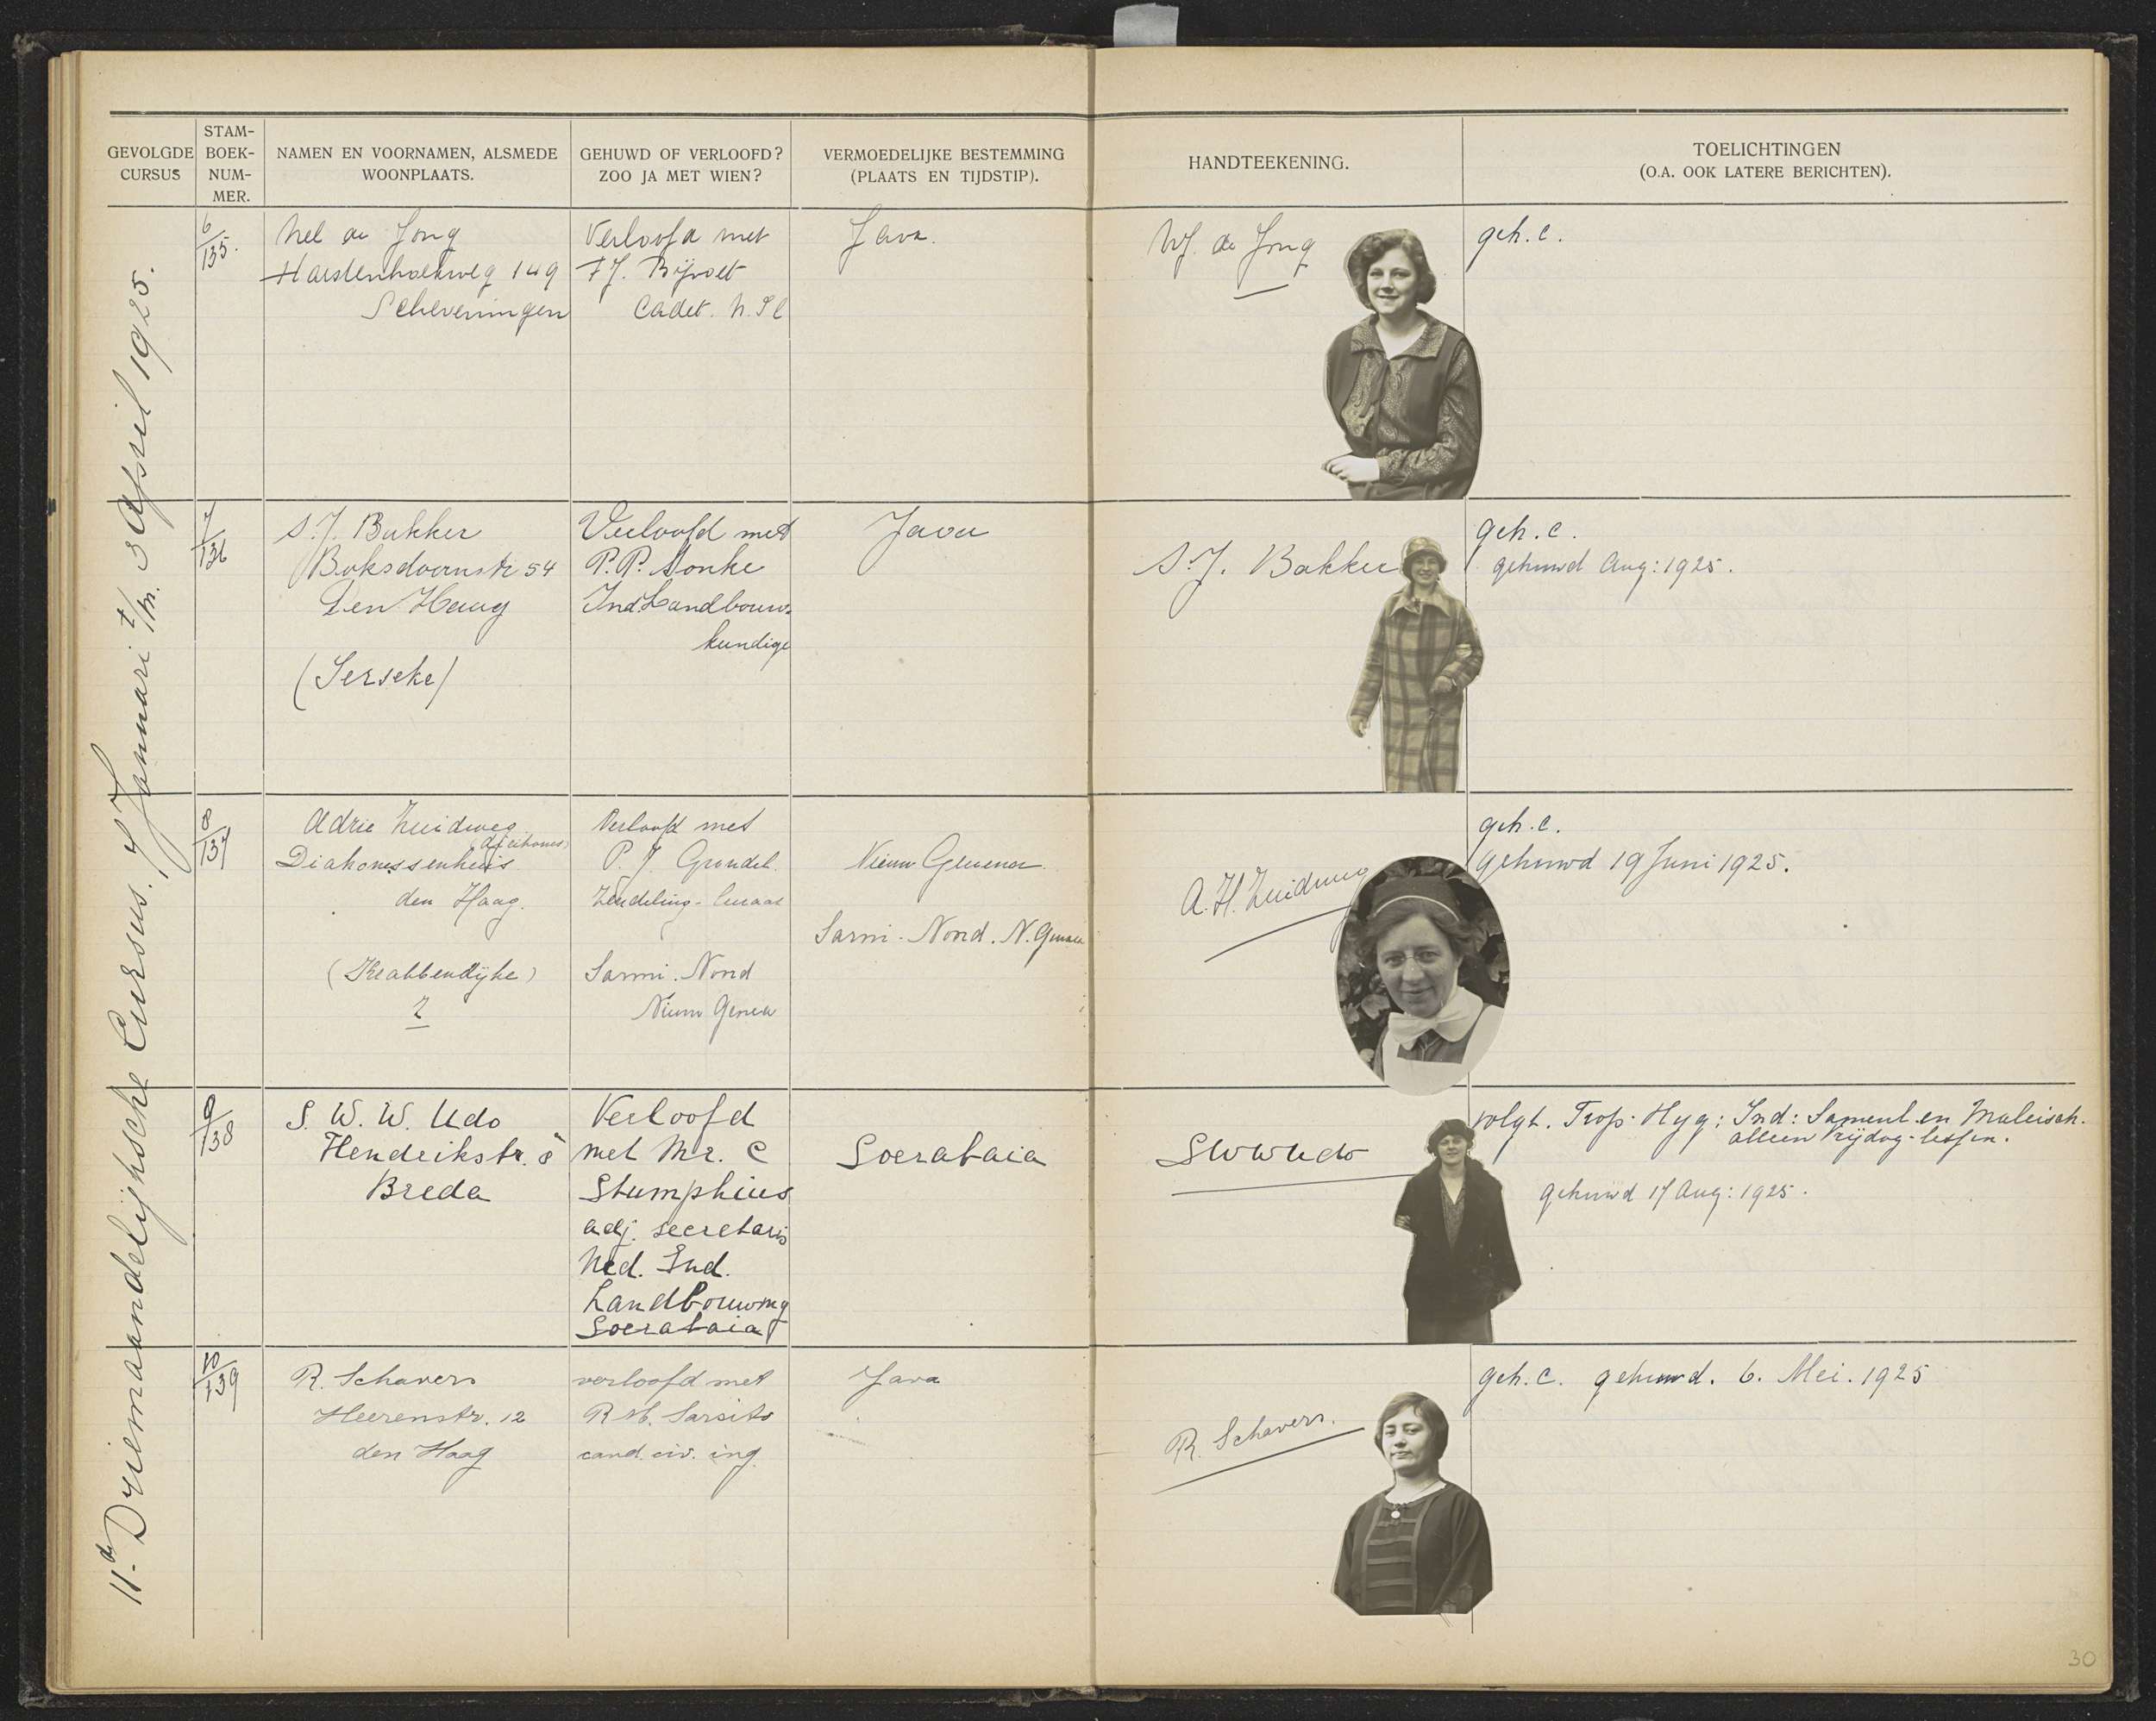 GEVOLGDE CURSUS
STAM-BOEK-NUM-MER.
NAMEN EN VOORNAMEN, ALSMEDE WOONPLAATS.
GEHUWD OF VERLOOFD? ZOO JA MET WIEN?
VERMOEDELIJKE BESTEMMING (PLAATS EN TIJDSTIP).
HANDTEEKENING.
TOELICHTINGEN (O.A. OOK LATERE BERICHTEN).
11de Driemaandelijksche Cursus. 7 Januari t/m. 3 April 1925.
6/135.
Nel de Jong
149
Scheveningen
Verloofd met
F.J. Bijvoet
Cadet. N.I.
Java.
de Jong
geh. c.
7/136
S.J. Bakker
54
Den Haag
(Ierseke)
Verloofd met
P.P.
Ind. Landbouw-
kundige
Java
S.J. Bakker
geh. c.
gehuwd Aug: 1925.
8/137
Adrie Zuidweg
Diakonessenhuis
den Haag.
(Krabbendijke)
?
Verloofd met
P. J. Grondel.
Zendeling-leraar
Sarmi. Nord
Nieuw Genea
Nieuw Guinea
Sarmi. Nord. N. Guinea
A.H. Zuidweg
geh. c.
gehuwd 19 Juni 1925.
9/138
S. W. W. Udo
Hendrikstr. 8
Breda
Verloofd
met Mr. C
Stumphius
adj. secretaris
Ned. Ind.
Landbouw
Soerabaia
Soerabaia
SWWUdo
volgt. Trop. Hyg: Ind: Samenl. en Maleisch.
alleen Vrijdag-lessen.
gehuwd 17 Aug: 1925.
10/139
R. Schavers
Heerenstr. 12
den Haag
verloofd met
R.M. Sarsito
cand. civ. ing.
Java
R. Schavers.
geh. c. gehuwd. 6. Mei. 1925
30